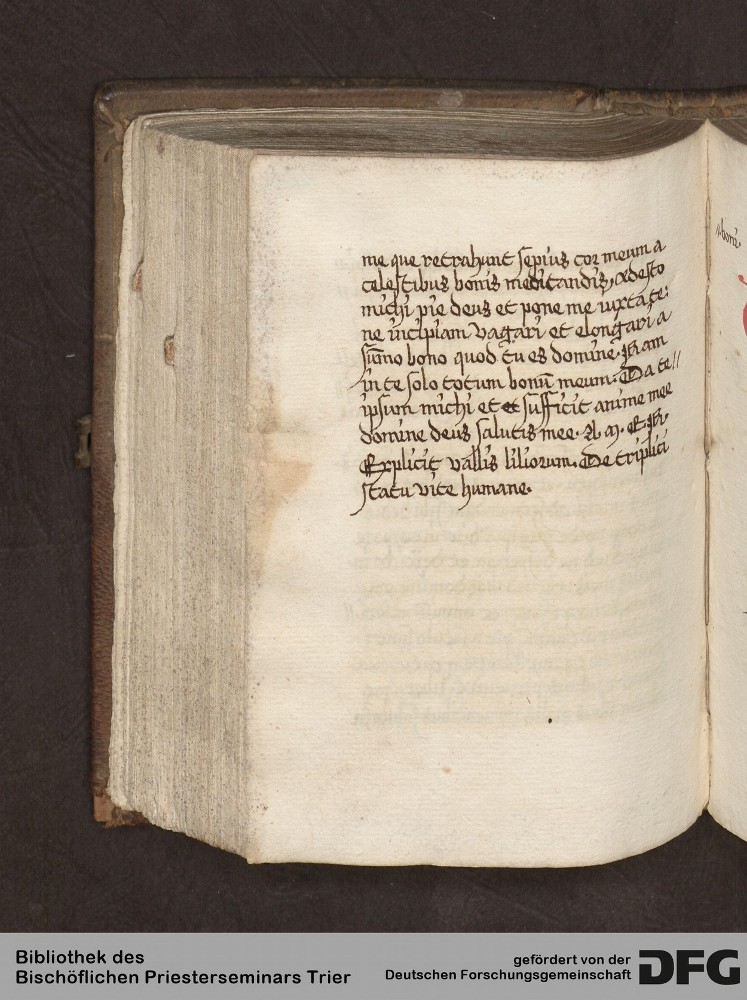 me que retrahunt sepius cor meum a
celestibus bonis meditandis, adesto
michi pie deus et pone me iuxta te:
ne incipiam vagari et elongari a
sūmo bono quod tu es domine. Nam
in te solo totum bonū meum. Da te //
ipsum michi et sufficit anime mee
domine deus salutis mee. A. M. E. N.
Explicit vallis liliorum. De triplici
statu vite humane.
Bibliothek des
Bischöflichen Priesterseminars Trier
gefördert von der
Deutschen Forschungsgemeinschaft
DFG